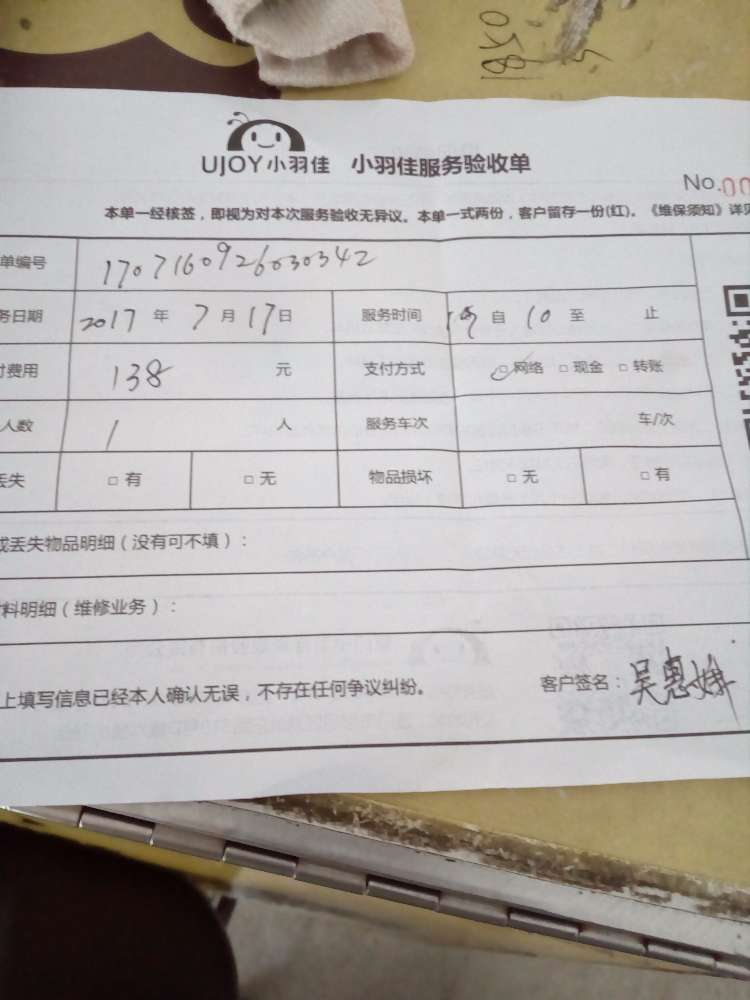 0581
UJOY小羽佳 小羽佳服务验收单
No.00
本单一经核签，即视为对本次服务验收无异议。本单一式两份，客户留存一份(红)。《维保须知》详见
单编号 1707160926030342
务日期 2017 年 7 月 17 日 服务时间 自 10 至 止
付费用 138 元 支付方式 □网络 □现金 □转账
人数 1 人 服务车次 车/次
丢失 □有 □无 物品损坏 □无 □有
或丢失物品明细（没有可不填）：
料明细（维修业务）：
上填写信息已经本人确认无误，不存在任何争议纠纷。 客户签名：吴惠妹